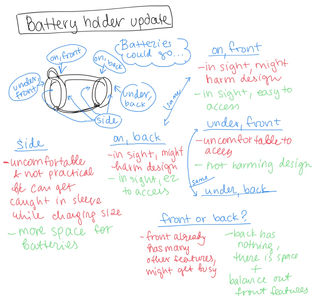 Battery holder update
Batteries
could go...
on, front
on, back
under,
front
under,
back
side
on, front
- in sight, might
harm design
- in sight, easy to
access
same
under, front
- uncomfortable to
access
- not harming design
same
under, back
side
- uncomfortable
& not practical
bc can get
caught in sleeve
while changing size
- more space for
batteries
on, back
- in sight, might
harm design
- in sight, ez
to access
front or back?
- front already
has many
other features,
might get busy
- back has
nothing,
there is space
+
balance out
front features